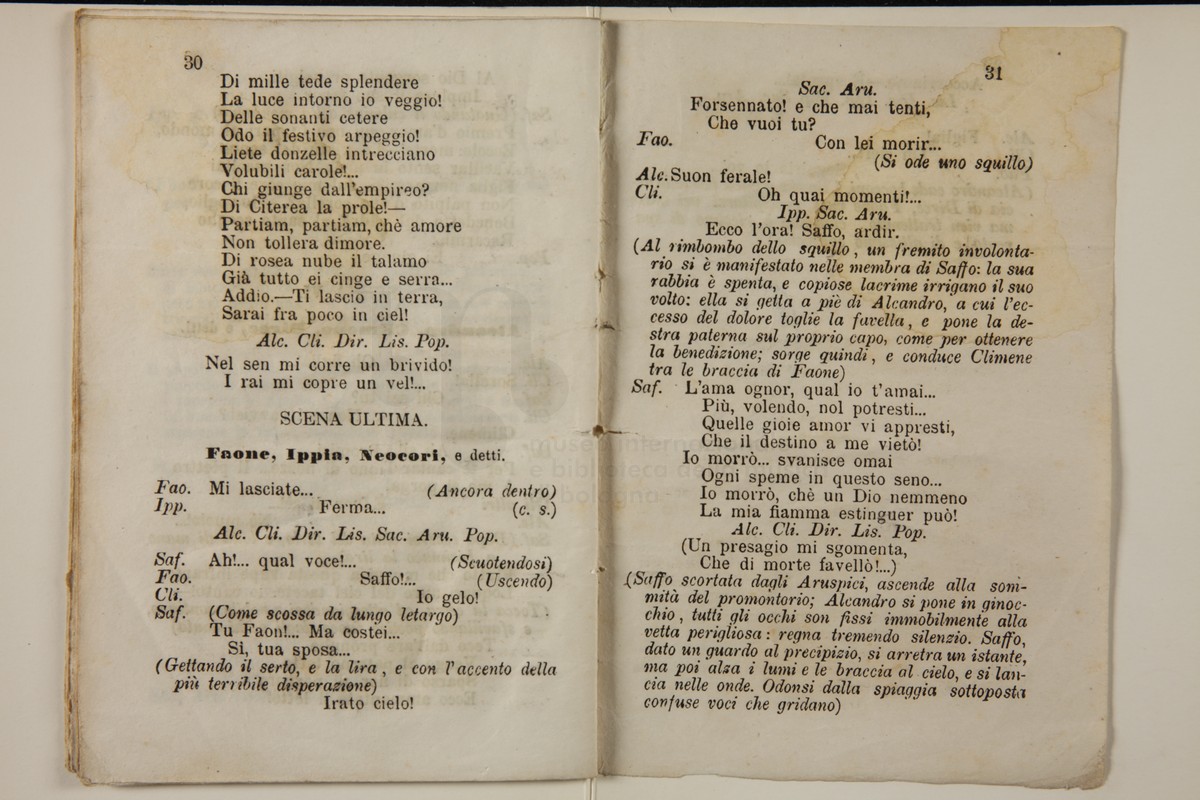 30
Di mille tede splendere
La luce intorno io veggio!
Delle sonanti cetere
Odo il festivo arpeggio!
Liete donzelle intrecciano
Volubili carole!...
Chi giunge dall'empireo?
Di Citerea la prole!—
Partiam, partiam, chè amore
Non tollera dimore.
Di rosea nube il talamo
Già tutto ei cinge e serra...
Addio.—Ti lascio in terra,
Sarai fra poco in ciel!
Alc. Cli. Dir. Lis. Pop.
Nel sen mi corre un brivido!
I rai mi copre un vel!...
SCENA ULTIMA.
Faone, Ippia, Neocori, e detti.
Fao. Mi lasciate... (Ancora dentro)
Ipp. Ferma... (c. s.)
Alc. Cli. Dir. Lis. Sac. Aru. Pop.
Saf. Ah!... qual voce!... (Scuotendosi)
Fao. Saffo!... (Uscendo)
Cli. Io gelo!
Saf. (Come scossa da lungo letargo)
Tu Faon!... Ma costei...
Sì, tua sposa...
(Gettando il serto, e la lira, e con l'accento della
più terribile disperazione)
Irato cielo!
31
Sac. Aru.
Forsennato! e che mai tenti,
Che vuoi tu?
Fao. Con lei morir...
(Si ode uno squillo)
Alc. Suon ferale!
Cli. Oh quai momenti!...
Ipp. Sac. Aru.
Ecco l'ora! Saffo, ardir.
(Al rimbombo dello squillo, un fremito involonta-
rio si è manifestato nelle membra di Saffo: la sua
rabbia è spenta, e copiose lacrime irrigano il suo
volto: ella si getta a piè di Alcandro, a cui l'ec-
cesso del dolore toglie la favella, e pone la de-
stra paterna sul proprio capo, come per ottenere
la benedizione; sorge quindi, e conduce Climene
tra le braccia di Faone)
Saf. L'ama ognor, qual io t'amai...
Più, volendo, nol potresti...
Quelle gioie amor vi appresti,
Che il destino a me vietò!
Io morrò... svanisce omai
Ogni speme in questo seno...
Io morrò, chè un Dio nemmeno
La mia fiamma estinguer può!
Alc. Cli. Dir. Lis. Pop.
(Un presagio mi sgomenta,
Che di morte favellò!...)
(Saffo scortata dagli Aruspici, ascende alla som-
mità del promontorio; Alcandro si pone in ginoc-
chio, tutti gli occhi son fissi immobilmente alla
vetta perigliosa: regna tremendo silenzio. Saffo,
dato un guardo al precipizio, si arretra un istante,
ma poi alza i lumi e le braccia al cielo, e si lan-
cia nelle onde. Odonsi dalla spiaggia sottoposta
confuse voci che gridano)